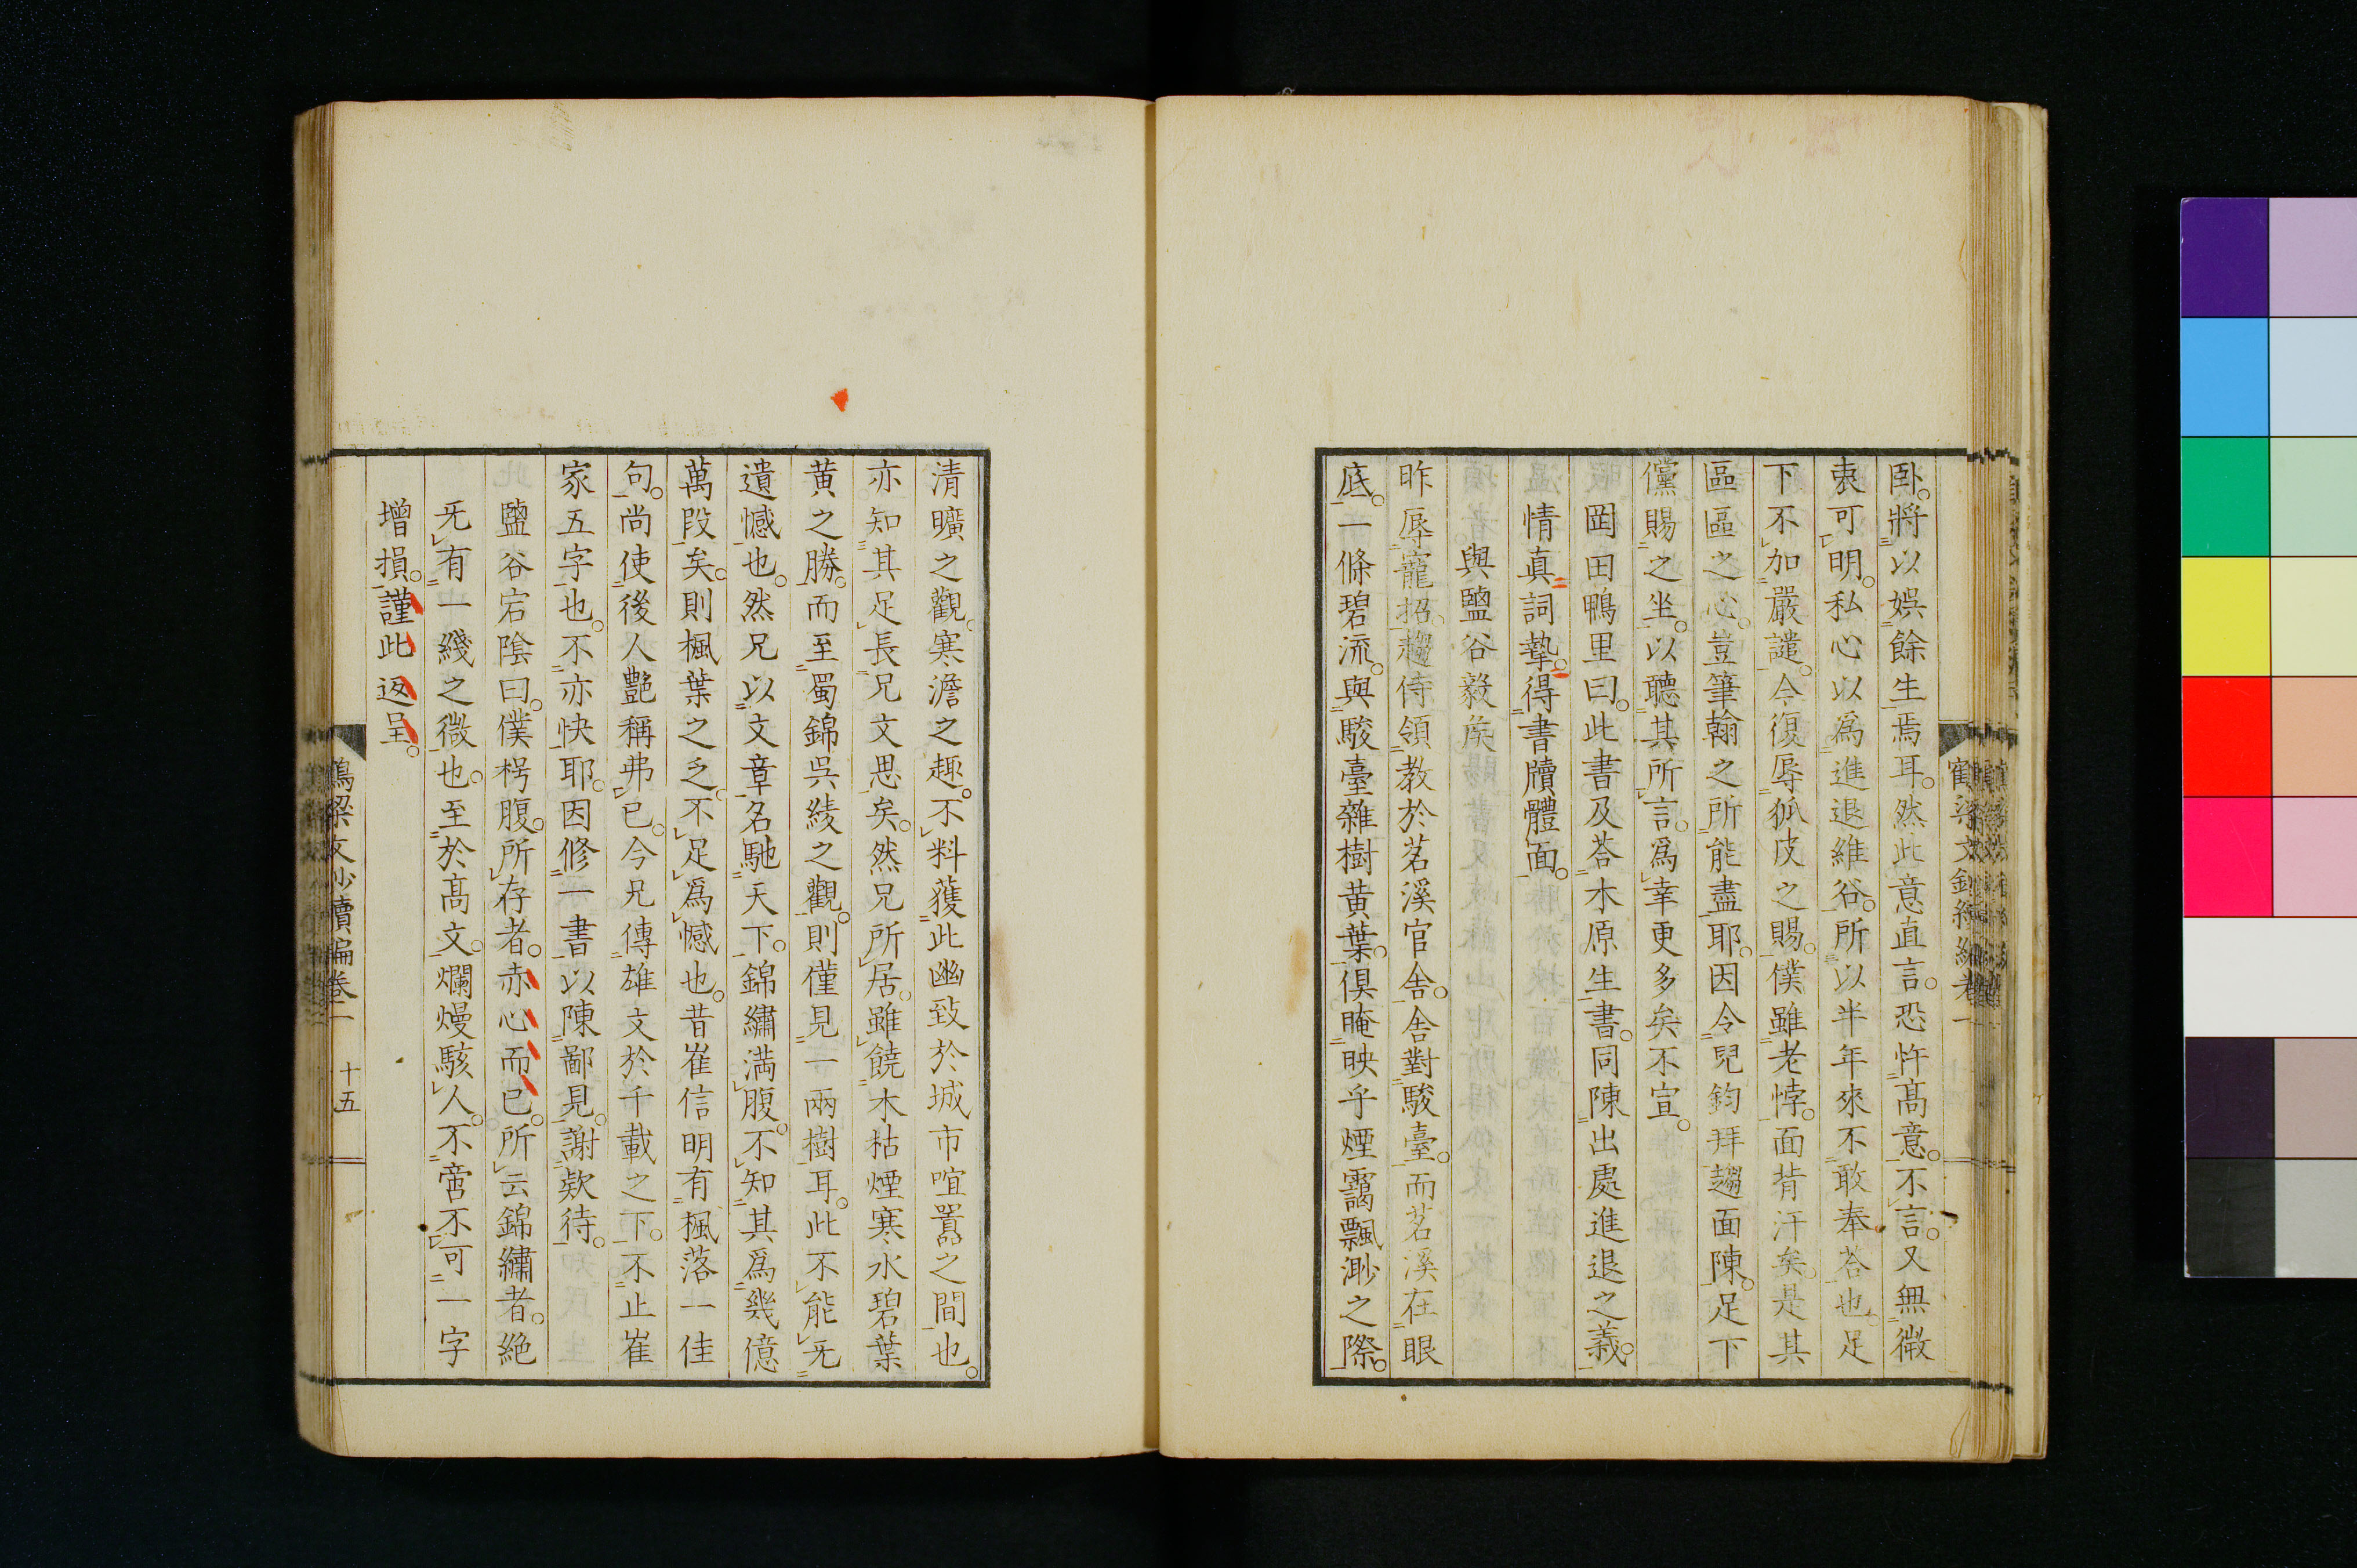 臥。將以娯餘生焉耳。然此意直言。恐忤髙意。不言。又無微
衷可明。私心以爲進退維谷。所以半年來不敢奉荅也。足
下不加嚴譴。今復辱狐皮之賜。僕雖老悖。面背汗矣。是其
區區之心。豈筆翰之所能盡耶。因令兒鈞拜趨面陳。足下
儻賜之坐。以聽其所言。爲幸更多矣不宣。
岡田鴨里曰。此書及荅木原生書。同陳出處進退之義。
情真詞摯。得書牘體面。
與鹽谷毅矦
昨辱寵招。趨侍領教於茗溪官舍。舍對駿臺。而茗溪在眼
底。一條碧流。與駿臺雜樹黄葉。倶晻映乎煙靄飄渺之際。
清曠之觀。寒澹之趣。不料獲此幽致於城市喧囂之間也。
亦知其足長兄文思矣。然兄所居。雖饒木枯煙寒水碧葉
黄之勝。而至蜀錦呉綾之觀。則僅見一兩樹耳。此不能无
遺憾也。然兄以文章名馳天下。錦繡満腹。不知其爲幾億
萬段矣。則楓葉之乏。不足爲憾也。昔崔信明有楓落一佳
句。尚使後人艷稱弗已。今兄傳雄文於千載之下。不止崔
家五字也。不亦快耶。因修一書。以陳鄙見。謝欵待。
鹽谷宕陰曰。僕枵腹。所存者。赤心而已。所云錦繡者。絶
无有一綫之微也。至於髙文。爛熳駭人。不啻不可一字
增損。謹此返呈。
鶴梁文鈔續編卷一 十五